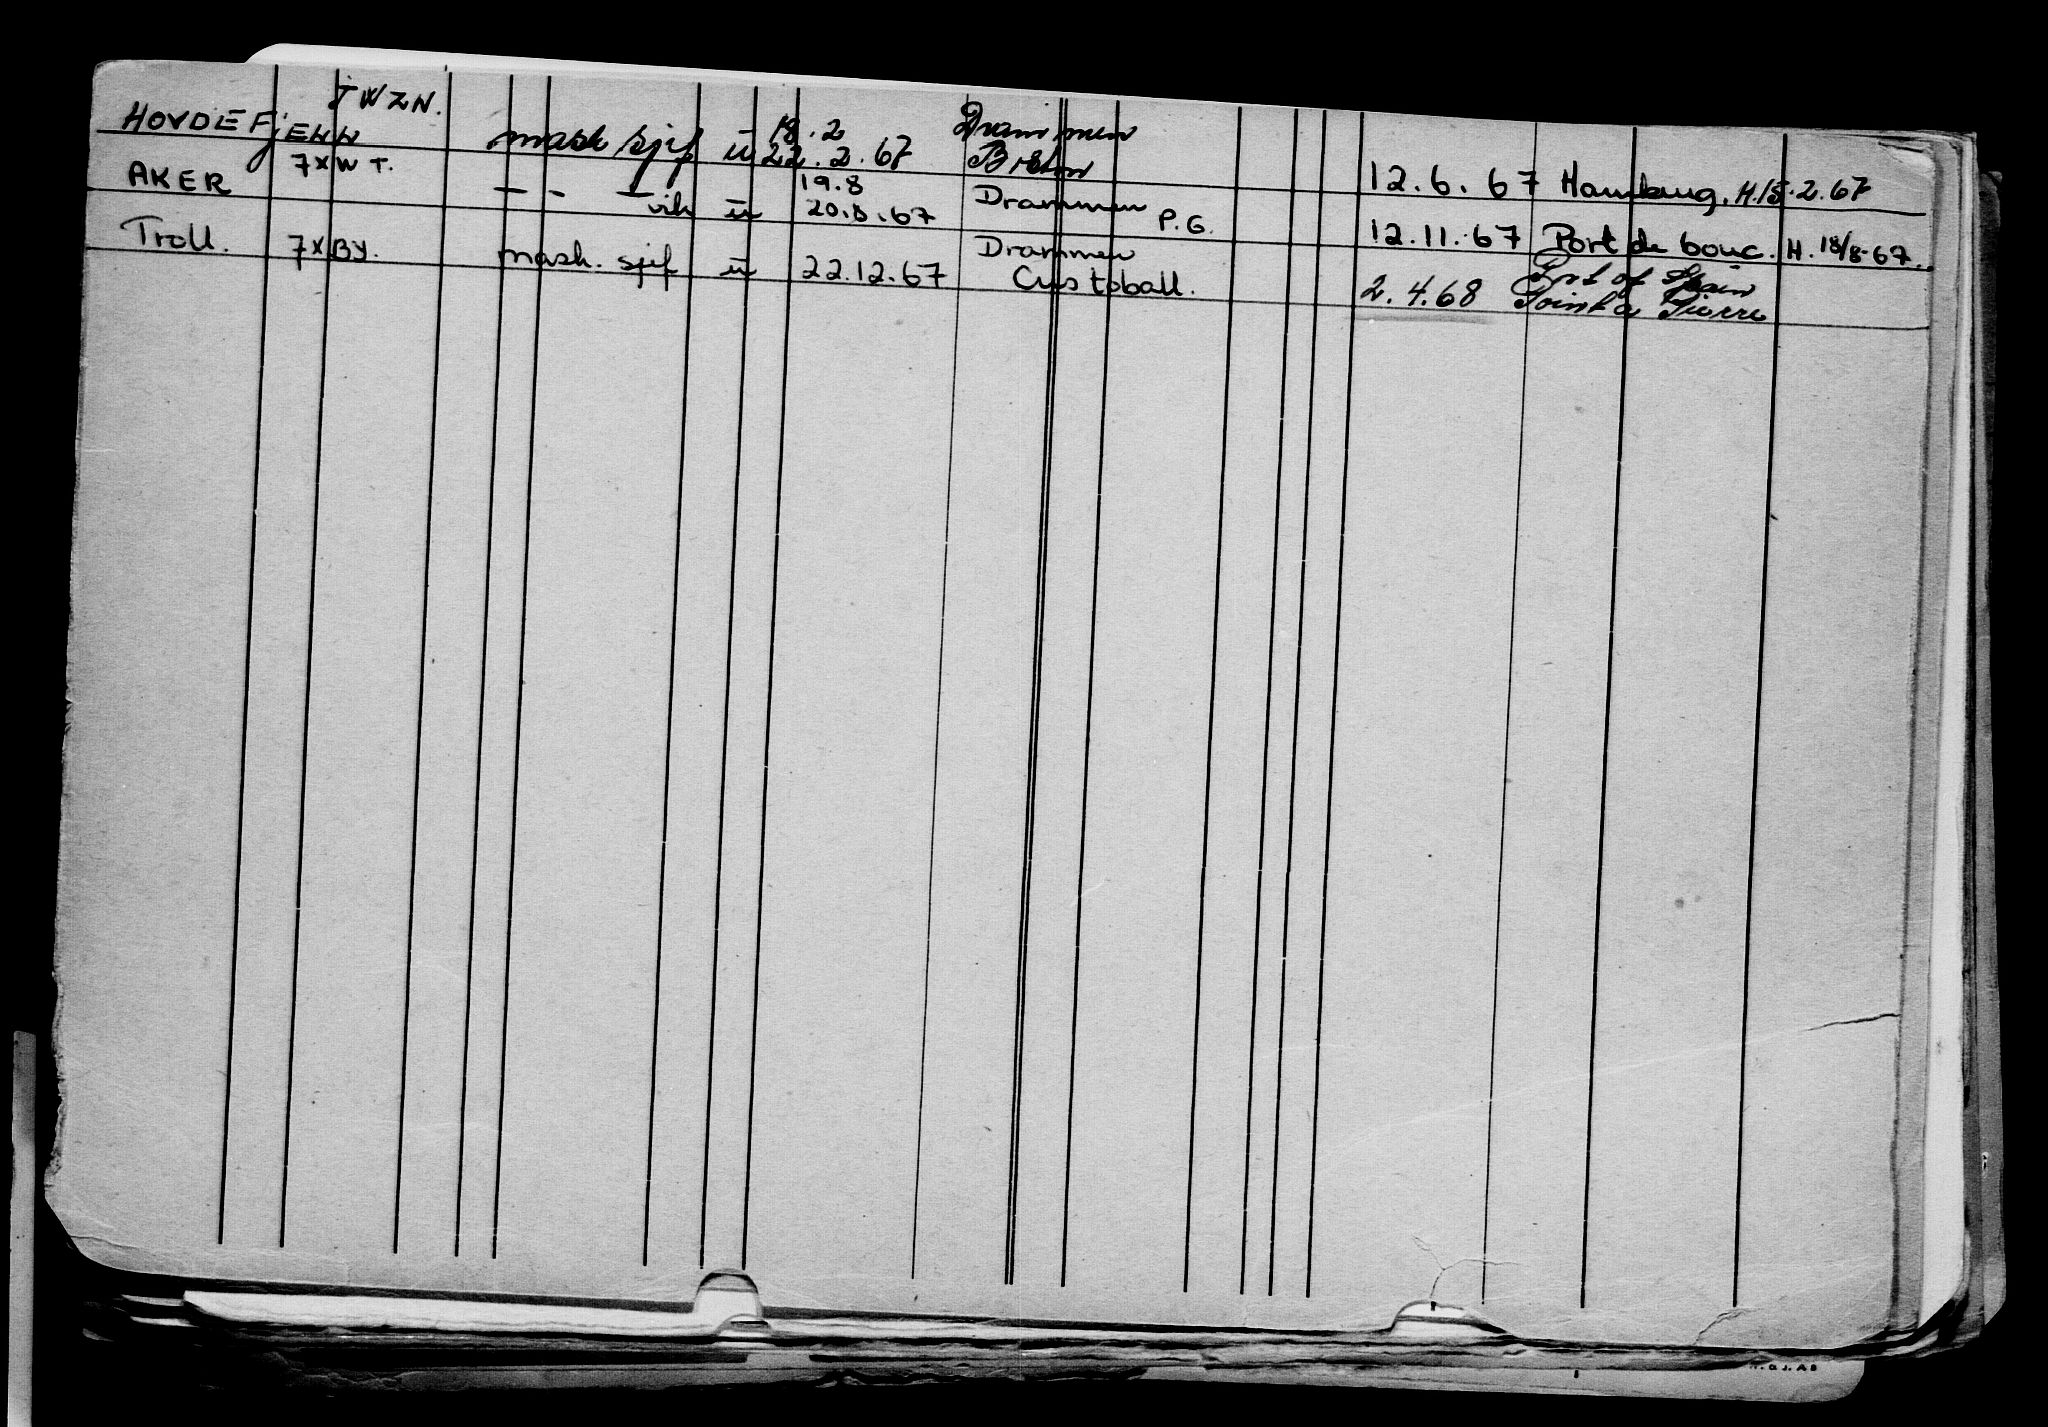 JWZN.
HOVDEFjELL mask sjef ü 18.2 22.2.67 Drammen Brehm 12.6.67 Hamburg. H.15.2.67
AKER 7xWT. — - — vik ü 19.8 20.8.67 Drammen P.G. 12.11.67 Port de bouc. H. 18/8-67.
Troll. 7xBY. mask. sjef ü 22.12.67 Drammen Custoball. 2.4.68 Port of Spain Point a Pierre